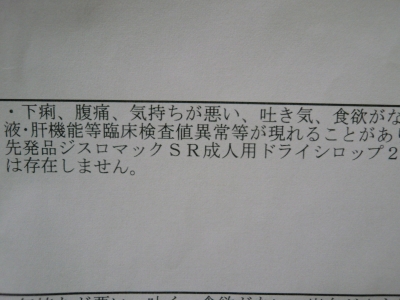 ・下痢、腹痛、気持ちが悪い、吐き気、食欲がな
液・肝機能等臨床検査値異常等が現れることがあり
先発品ジスロマックＳＲ成人用ドライシロップ２
は存在しません。